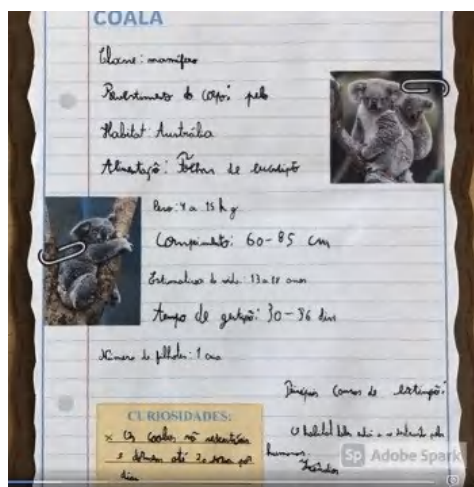 COALA
Classe: mamífero
Revestimento do corpo: pelo
Habitat: Austrália
Alimentação: Folhas de eucalipto
Peso: 4 a 15 kg
Comprimento: 60-85 cm
Estimativa de vida: 13 a 18 anos
tempo de gestação: 30-36 dias
Número de filhotes: 1
Principais causas de extinção:
CURIOSIDADES:
× Os coalas são
e dormem até 20 horas por
dia
O habitat
humanos.
Adobe Spark